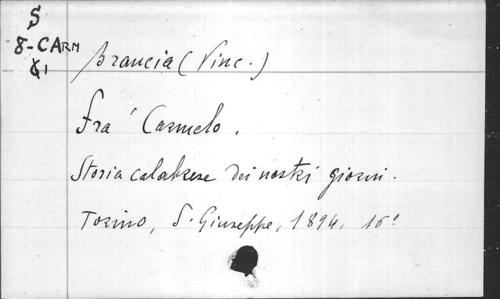 S
8-CARM
61
Brancia (Vinc.)
Fra' Carmelo.
Storia calabrese dei nostri giorni.
Torino, S. Giuseppe, 1894. 16°